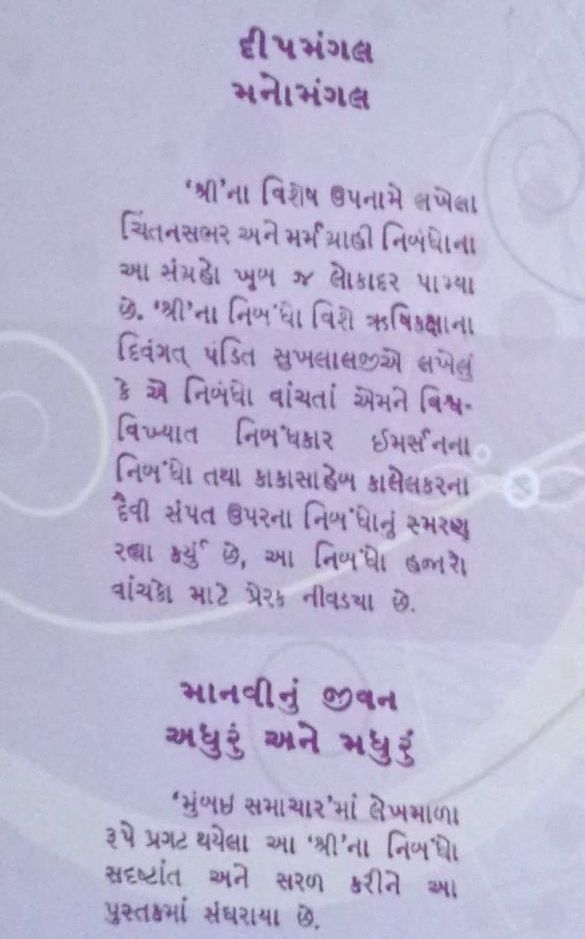 દીપમંગલ
મનોમંગલ
‘શ્રી’ના વિશેષ ઉપનામે લખેલા
ચિંતનસભર અને મર્મગ્રાહી નિબંધોના
આ સંગ્રહો ખૂબ જ લોકાદર પામ્યા
છે. ‘શ્રી’ના નિબંધો વિશે ઋષિકક્ષાના
દિવંગત્ પંડિત સુખલાલજીએ લખેલું
કે એ નિબંધો વાંચતાં એમને વિશ્વ-
વિખ્યાત નિબંધકાર ઈમર્સનના
નિબંધો તથા કાકાસાહેબ કાલેલકરના
દૈવી સંપત ઉપરના નિબંધોનું સ્મરણ
રહ્યા કર્યું છે, આ નિબંધો હજારો
વાંચકો માટે પ્રેરક નીવડયા છે.
માનવીનું જીવન
અધુરું અને મધુરું
‘મુંબઇ સમાચાર’માં લેખમાળા
રૂપે પ્રગટ થયેલા આ ‘શ્રી’ના નિબંધો
સદષ્ટાંત અને સરળ કરીને આ
પુસ્તકમાં સંઘરાયા છે.